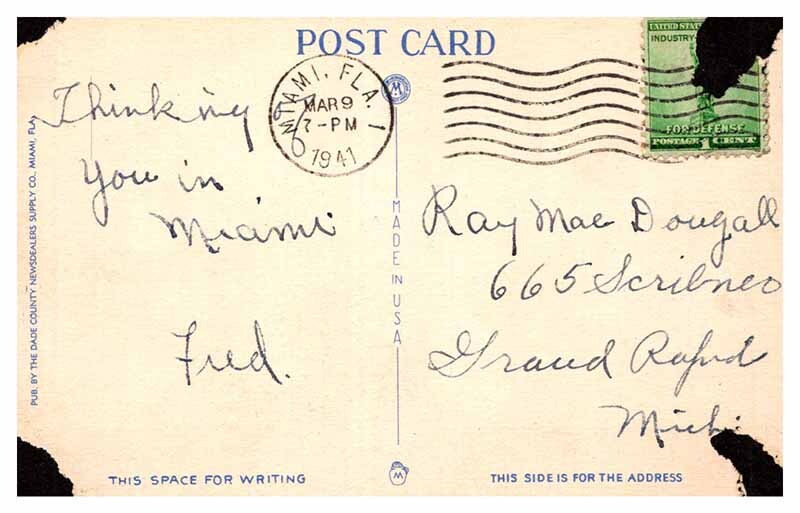 POST CARD
MIAMI, FLA. 1
MAR 9
7-PM
1941
UNITED STATES
INDUSTRY
FOR DEFENSE
POSTAGE 1 CENT
Thinking
You in
Miami
Fred.
Ray Mac Dougall
665 Scribner
Grand Rapid
Mich.
MADE IN USA
PUB. BY THE DADE COUNTY NEWSDEALERS SUPPLY CO., MIAMI, FLA.
THIS SPACE FOR WRITING
THIS SIDE IS FOR THE ADDRESS